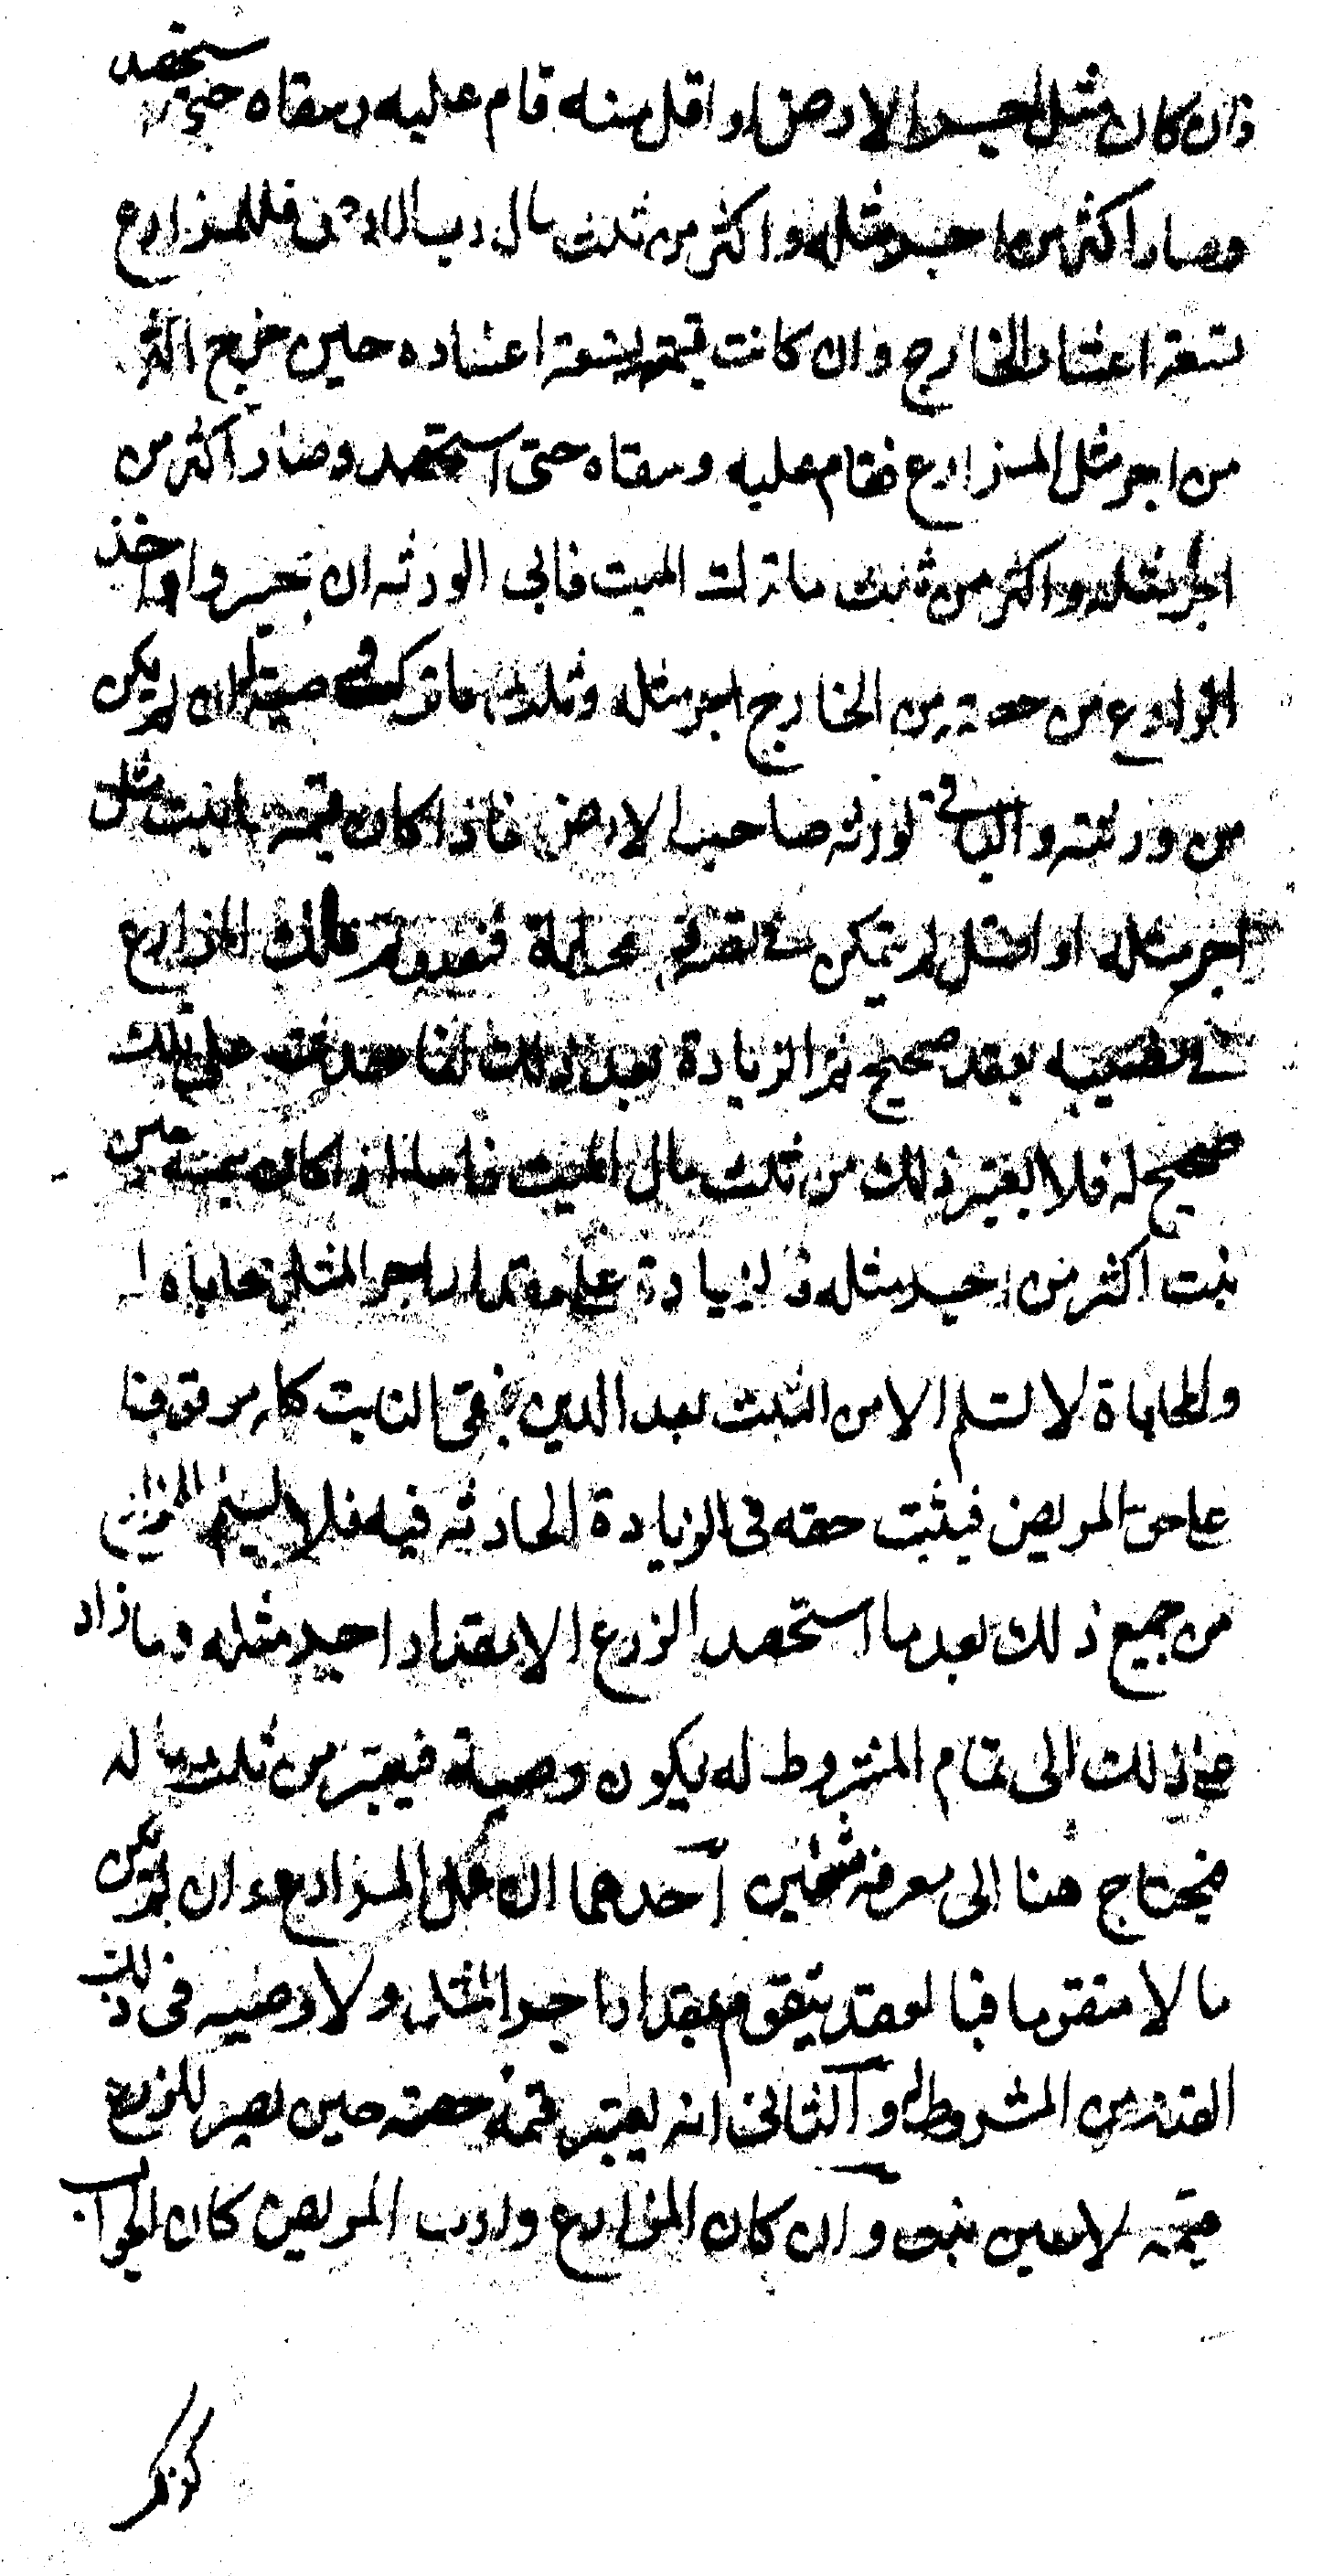 وان كان مثل اجر الارض او اقل منه قام عليه وسقاه حتى استحصد
وصار اكثر من اجر مثله واكثر من ثلث مال رب الارض فللمزارع
تسعة اعشار الخارج وان كانت قيمة تسعة اعشاره حين خرج اكثر
من اجر مثل المزارع فقام عليه وسقاه حتى استحصد وصار اكثر من
اجر مثله واكثر من ثلث ما ترك الميت فابى الورثه ان يجيزوا اخذ
المزارع من حصته من الخارج اجر مثله وثلث ما ترك وصية له ان لم يكن
من ورثته والباقي لورثه صاحب الارض فاذا كان قيمته ما نبت مثل
اجر مثله او اقل لم يتمكن في تصرفه محاباة فيعد ذلك المزارع
في نصيبه بعقد صحيح ثم الزيادة بعد ذلك انما حدثت على ملك
صحيح له فلا يعتبر ذلك من ثلث مال الميت فاما اذا كان قيمته حين
نبت اكثر من اجر مثله فالزيادة على مقدار اجر المثل محاباه
والمحاباة لا تسلم الا من الثلث بعد الدين فبقي النابت كله موقوفا
على حق المريض فيثبت حقه في الزيادة الحادثه فيه فلا يسلم للمزارع
من جميع ذلك بعد ما استحصد الزرع الا مقدار اجر مثله وما زاد
على ذلك الى تمام المشروط له يكون وصية فيعتبر من ثلث ماله
فيحتاج هنا الى معرفة شيئين احدهما ان عمل المزارع وان لم يكن
مالا متقوما فبالعقد يتقوم بمقدار اجر المثل ولا وصيه في ذلك
القدر من المشروط له والثاني انه يعتبر قيمة حصته حين يصير للزرع
قيمته لا حين نبت وان كان المزارع وارث المريض كان الجواب